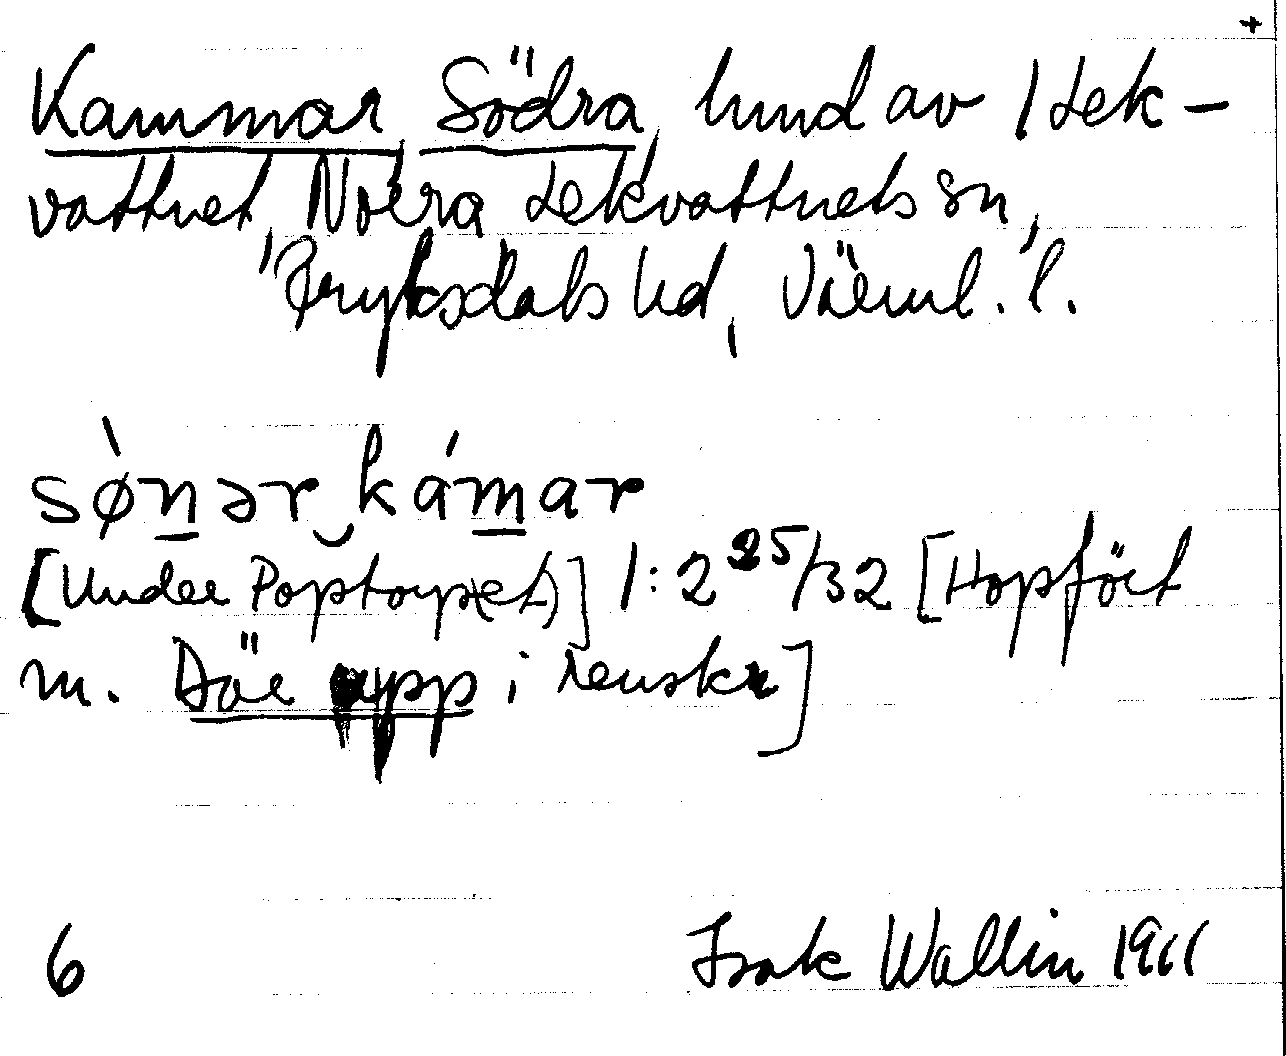 +
Kammar, Södra, hmd av 1 Lek-
vattnet, Norra Lekvattnets sn,
Fryksdals hd, Värml. l.
sø̀n̲ər‿kám̲ar
[Under Poptorp(et)] 1:2 25/32 [Hopfört
m. Där upp i renskr]
6 Isak Wallin 1911